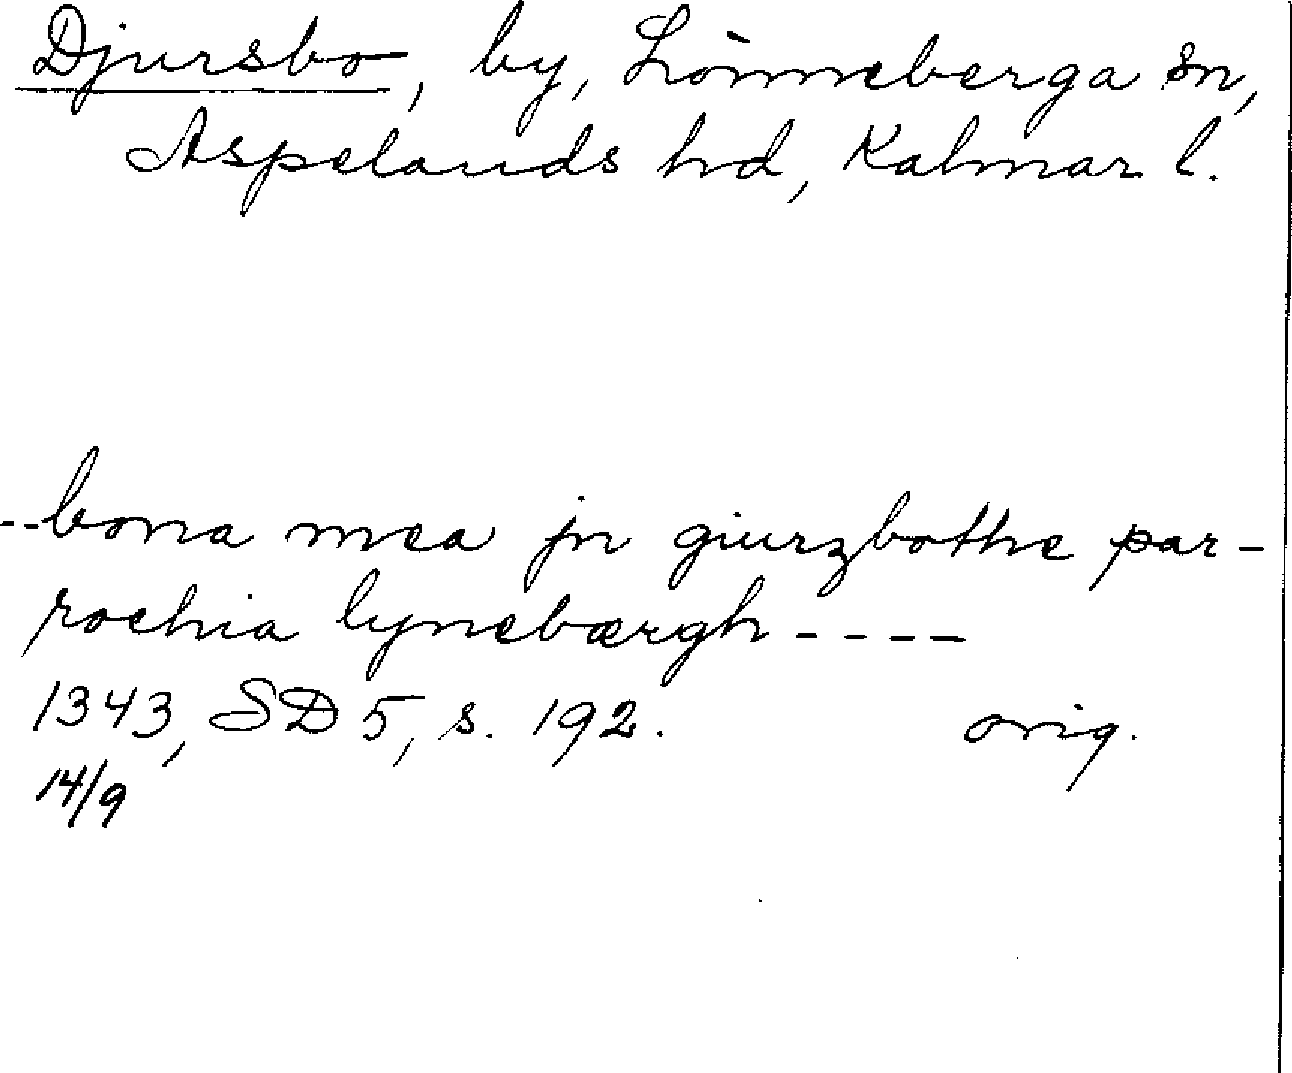 Djursbo, by, Lönneberga sn,
Aspelands hd, Kalmar l.
--bona mea jn giurzbothe par-
rochia lynebærgh ----
1343, SD 5, s. 192. orig.
14/9